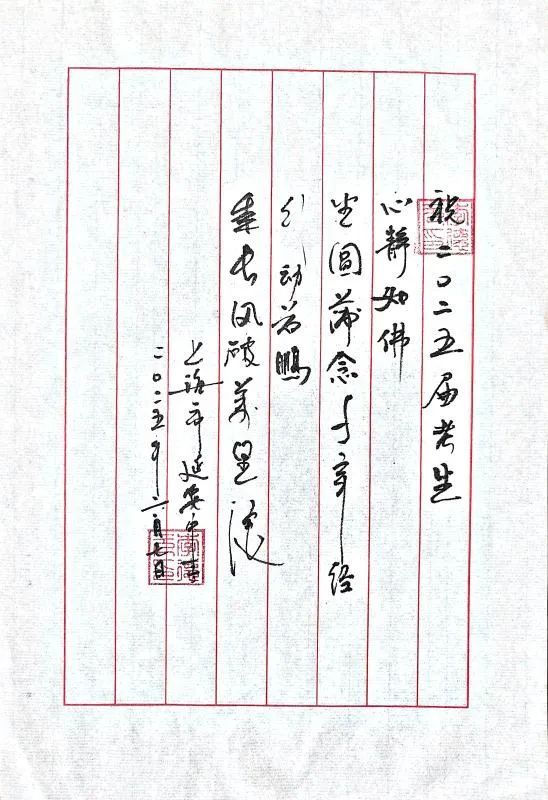 祝二〇二五届考生
心静如佛
坐圆蒲念千章经
行动若鹏
乘长风破万里浪
上海市延安中学
二〇二五年六月七日